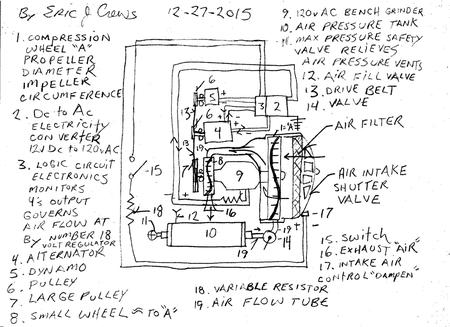 By Eric J Crews 12-27-2015
1. COMPRESSION
WHEEL "A"
PROPELLER
DIAMETER
IMPELLER
CIRCUMFERENCE
2. DC to AC
ELECTRICITY
CONVERTER
12V DC to 120V AC
3. LOGIC CIRCUIT
ELECTRONICS
MONITORS
4'S OUTPUT
GOVERNS
AIR FLOW AT
BY NUMBER 18
VOLT REGULATOR
4. ALTERNATOR
5. DYNAMO
6. PULLEY
7. LARGE PULLEY
8. SMALL WHEEL ≈ TO "A"
9. 120V AC BENCH GRINDER
10. AIR PRESSURE TANK
11. MAX PRESSURE SAFETY
VALVE RELIEVES
AIR PRESSURE VENTS
12. AIR FILL VALVE
13. DRIVE BELT
14. VALVE
AIR FILTER
AIR INTAKE
SHUTTER
VALVE
15. SWITCH
16. EXHAUST "AIR"
17. INTAKE AIR
CONTROL "DAMPEN"
18. VARIABLE RESISTOR
19. AIR FLOW TUBE
6
5
3
2
6
4
13
19
1"A"
15
8
9
13
18
11
12
16
17
10
19
14